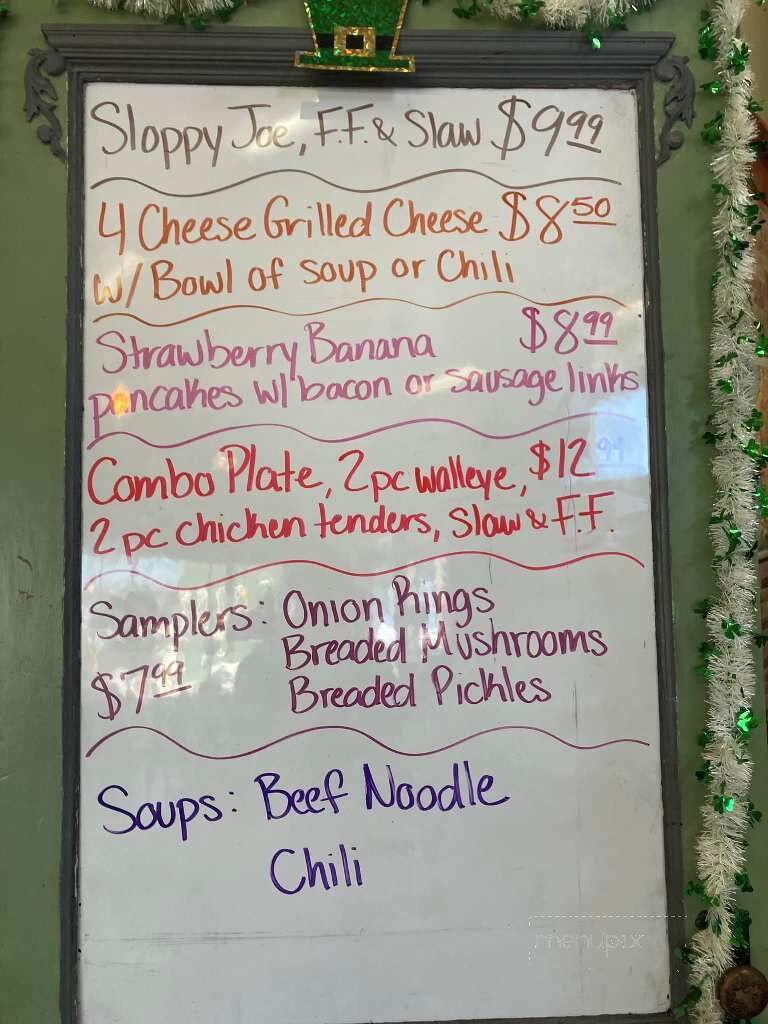 Sloppy Joe, F.F. & Slaw $9.99
4 Cheese Grilled Cheese $8.50
w/ Bowl of soup or Chili
Strawberry Banana $8.99
pancakes w/ bacon or sausage links
Combo Plate, 2pc walleye, $12.99
2 pc chicken tenders, Slaw & F.F.
Samplers: Onion Rings
Breaded Mushrooms
$7.99 Breaded Pickles
Soups: Beef Noodle
Chili
menupix